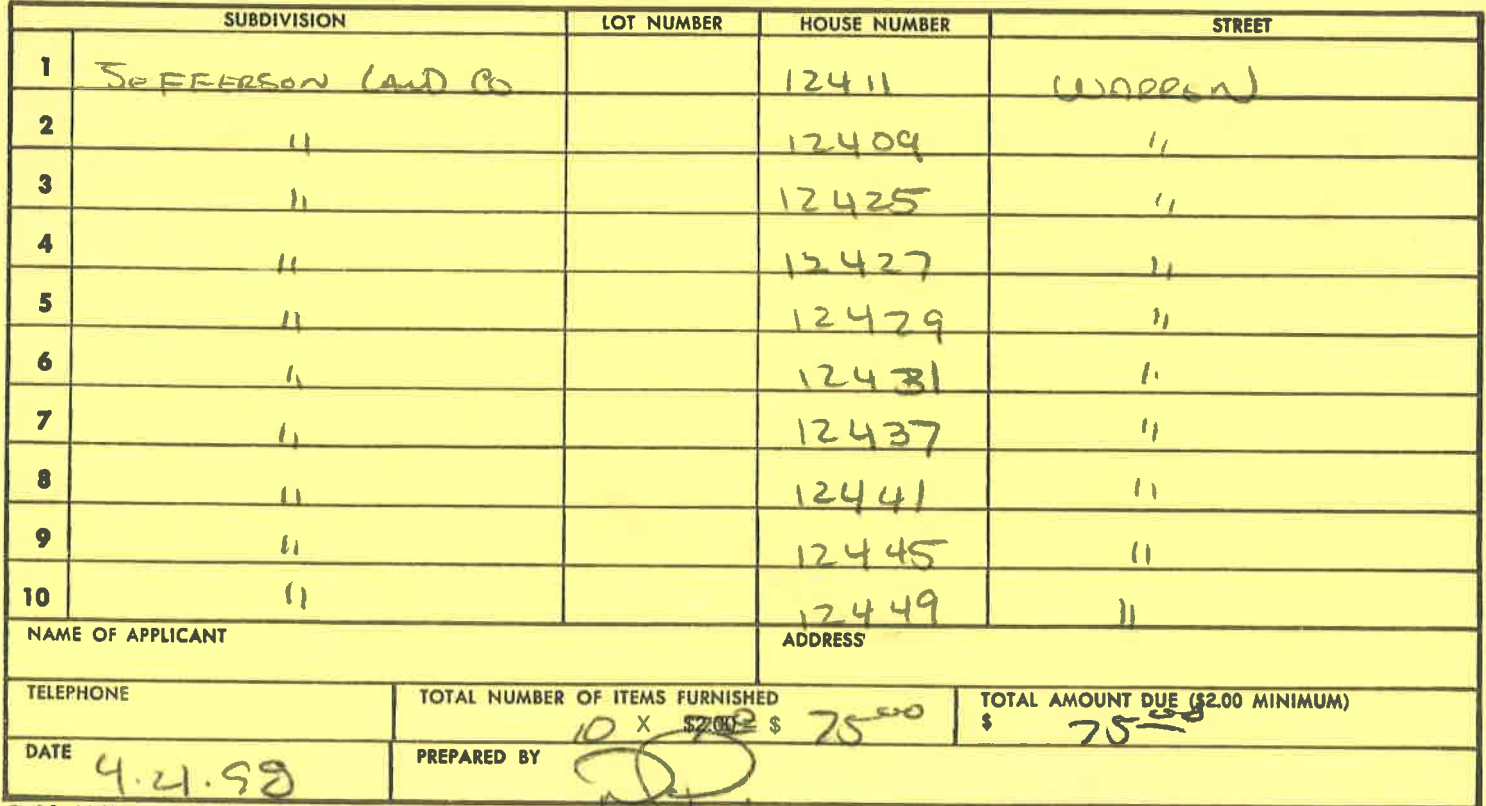 SUBDIVISION LOT NUMBER HOUSE NUMBER STREET
1 JEFFERSON LAND CO 12411 WARREN
2 " 12409 "
3 " 12425 "
4 " 12427 "
5 " 12429 "
6 " 12431 "
7 " 12437 "
8 " 12441 "
9 " 12445 "
10 " 12449 "
NAME OF APPLICANT ADDRESS
TELEPHONE TOTAL NUMBER OF ITEMS FURNISHED TOTAL AMOUNT DUE ($2.00 MINIMUM)
10 X $2.00 = $ 75.00 $ 75.00
DATE 4.21.98 PREPARED BY